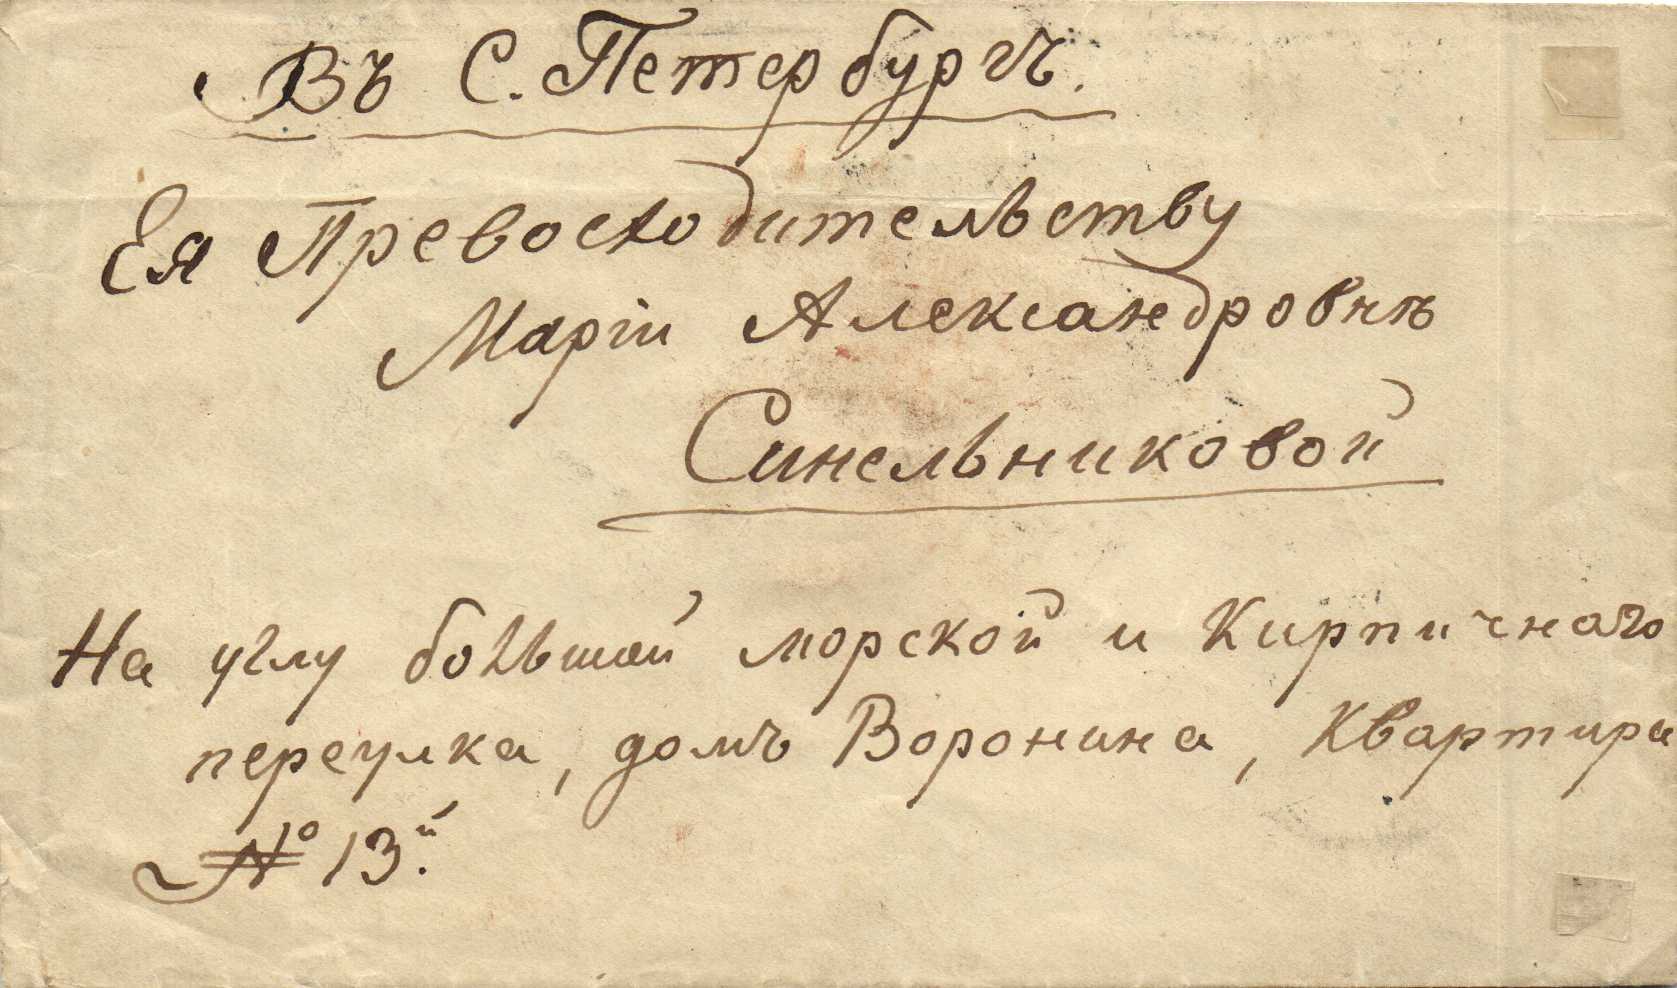 Въ С. Петербургъ.
Ея Превосходительству
Маріи Александровнѣ
Синельниковой
На углу большой морской и Кирпичнаго
переулка, домъ Воронина, Квартира
№ 13.й